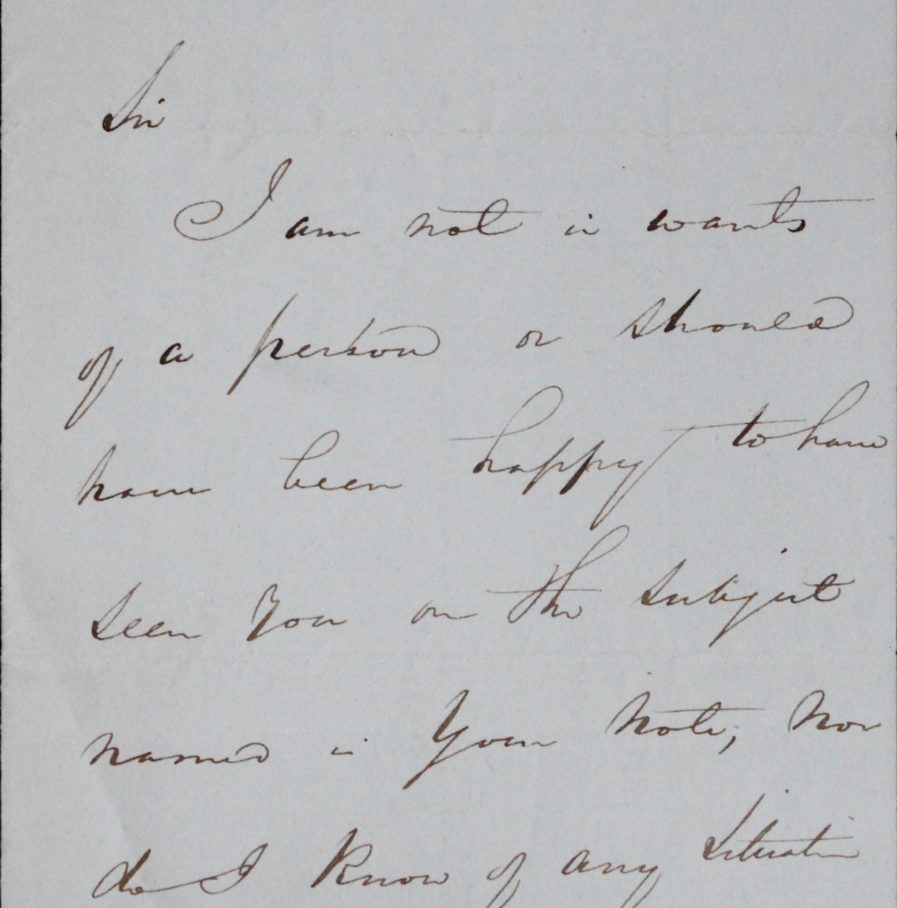 Sir
I am not in wants
of a person or should
have been happy to have
seen You on the subject
named in Your Note, Nor
do I Know of any Situation